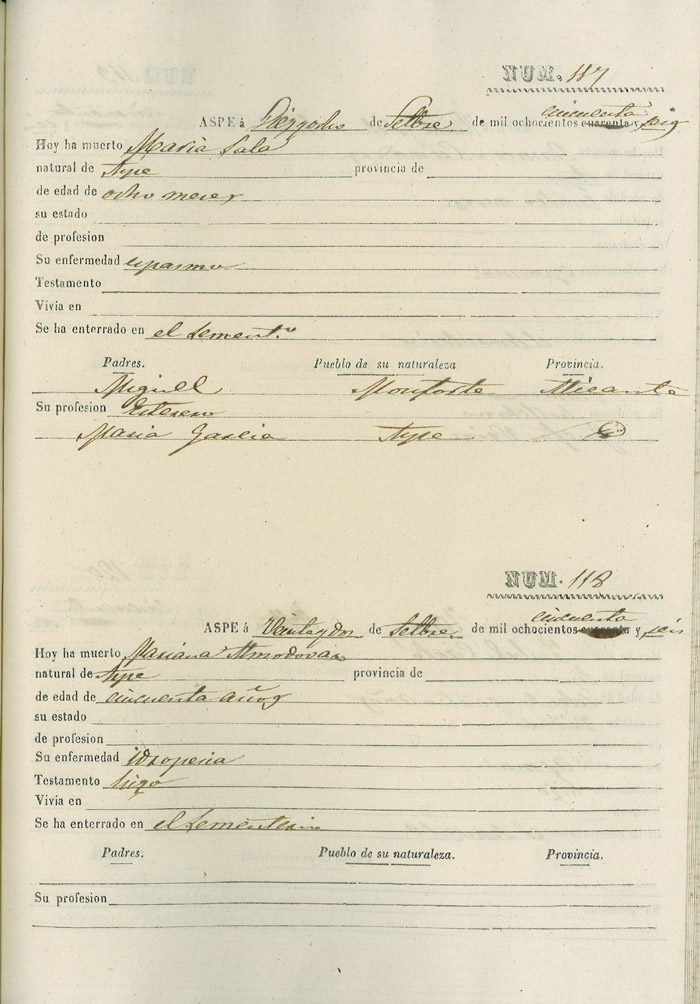 NUM. 117
cincuenta
ASPE á Diezyocho de Setbre de mil ochocientos cuarenta y seis
Hoy ha muerto Maria Sala
natural de Aspe provincia de
de edad de ocho meses
su estado
de profesion
Su enfermedad espasmo
Testamento
Vivia en
Se ha enterrado en el Sement.º
Padres. Pueblo de su naturaleza Provincia.
Miguel Monforte Alicante
Su profesion Esterero
Maria Garcia Aspe
NUM. 118
cincuenta
ASPE á Veinteydos de Setbre de mil ochocientos cuarenta y seis
Hoy ha muerto Mariana Almodovar
natural de Aspe provincia de
de edad de cincuenta años
su estado
de profesion
Su enfermedad idropesia
Testamento hizo
Vivia en
Se ha enterrado en el Sementerio
Padres. Pueblo de su naturaleza. Provincia.
Su profesion